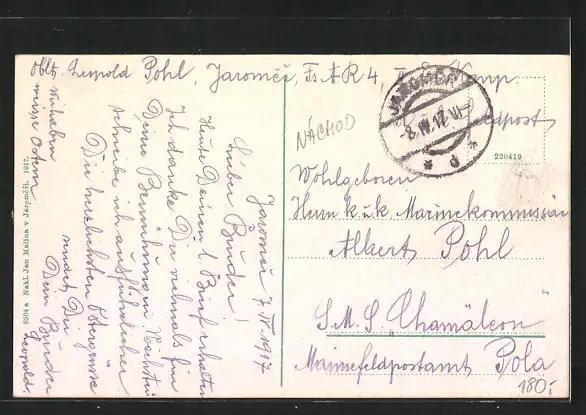 Oblt. Leopold Pohl, Jaroměř, Fs A R 4, II. Ers. Komp.
Feldpost
JAROMĚŘ
230419
NÁCHOD
Wohlgeboren
Herrn k. u. k. Marinekommissär
Albert Pohl
S. M. S. "Chamäleon"
Marinefeldpostamt Pola
180.-
Jaroměř 7. IV. 1917
Lieber Bruder!
Heute Deinen l. Brief erhalten
Ich danke Dir vielmals für
Deine Bemühung in
schreibe ich ausführlicher
Die herzlichsten Ostergrüsse
Dein Bruder
Leopold
Wir haben
Ostern
8504a Nakl. Jan Malina v Jaroměři. 1917.